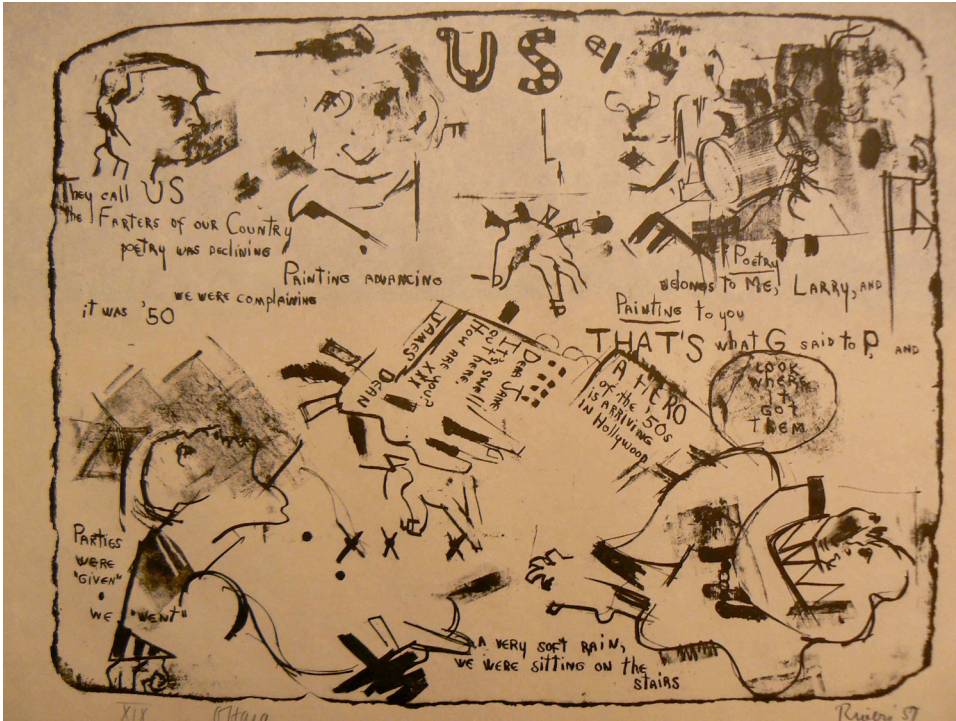 US
They call US
the FARTERS OF OUR COUNTRY
POETRY WAS DECLINING
PAINTING ADVANCING
WE WERE COMPLAINING
it WAS '50
POETRY
BELONGS to ME, LARRY, AND
PAINTING to you
THAT'S what G SAID to P, AND
LOOK
WHERE
IT
GOT
THEM
DEAR JANE
IT'S SWELL
OUT HERE.
HOW ARE YOU?
XXX
JAMES
DEAN
A HERO
OF the '50s
IS ARRIVING
IN Hollywood
PARTIES
WERE
"GIVEN"
WE "WENT"
A VERY SOFT RAIN,
WE WERE SITTING ON the
STAIRS
XIX
O'Hara
Rivers '57